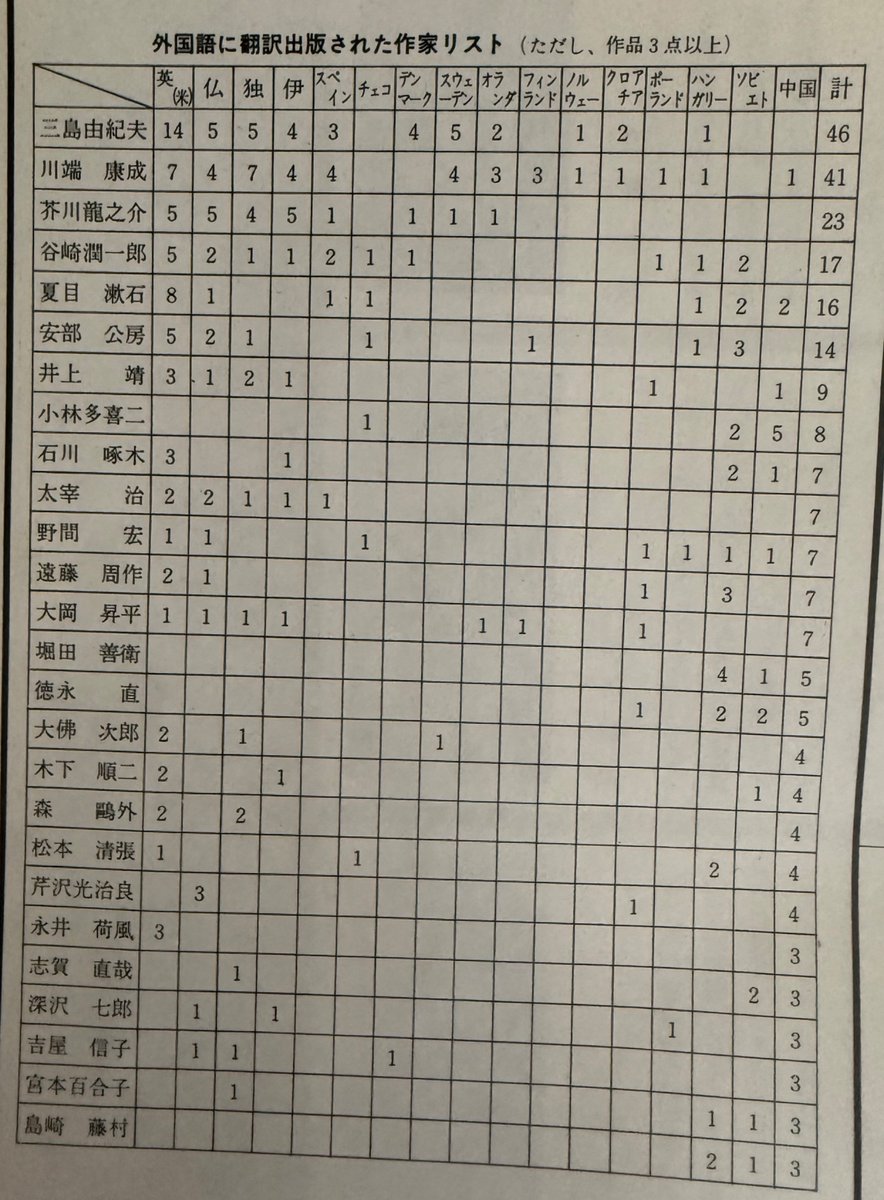 外国語に翻訳出版された作家リスト（ただし、作品3点以上）
英(米) 仏 独 伊 スペイン チェコ デンマーク スウェーデン オランダ フィンランド ノルウェー クロアチア ポーランド ハンガリー ソビエト 中国 計
三島由紀夫 14 5 5 4 3 4 5 2 1 2 1 46
川端 康成 7 4 7 4 4 4 3 3 1 1 1 1 1 41
芥川龍之介 5 5 4 5 1 1 1 1 23
谷崎潤一郎 5 2 1 1 2 1 1 1 1 2 17
夏目 漱石 8 1 1 1 1 2 2 16
安部 公房 5 2 1 1 1 1 3 14
井上 靖 3 1 2 1 1 1 9
小林多喜二 1 2 5 8
石川 啄木 3 1 2 1 7
太宰 治 2 2 1 1 1 7
野間 宏 1 1 1 1 1 1 1 7
遠藤 周作 2 1 1 3 7
大岡 昇平 1 1 1 1 1 1 1 7
堀田 善衛 4 1 5
徳永 直 1 2 2 5
大佛 次郎 2 1 1 4
木下 順二 2 1 1 4
森 鷗外 2 2 4
松本 清張 1 1 2 4
芹沢光治良 3 1 4
永井 荷風 3 3
志賀 直哉 1 2 3
深沢 七郎 1 1 1 3
吉屋 信子 1 1 1 3
宮本百合子 1 1 1 3
島崎 藤村 2 1 3